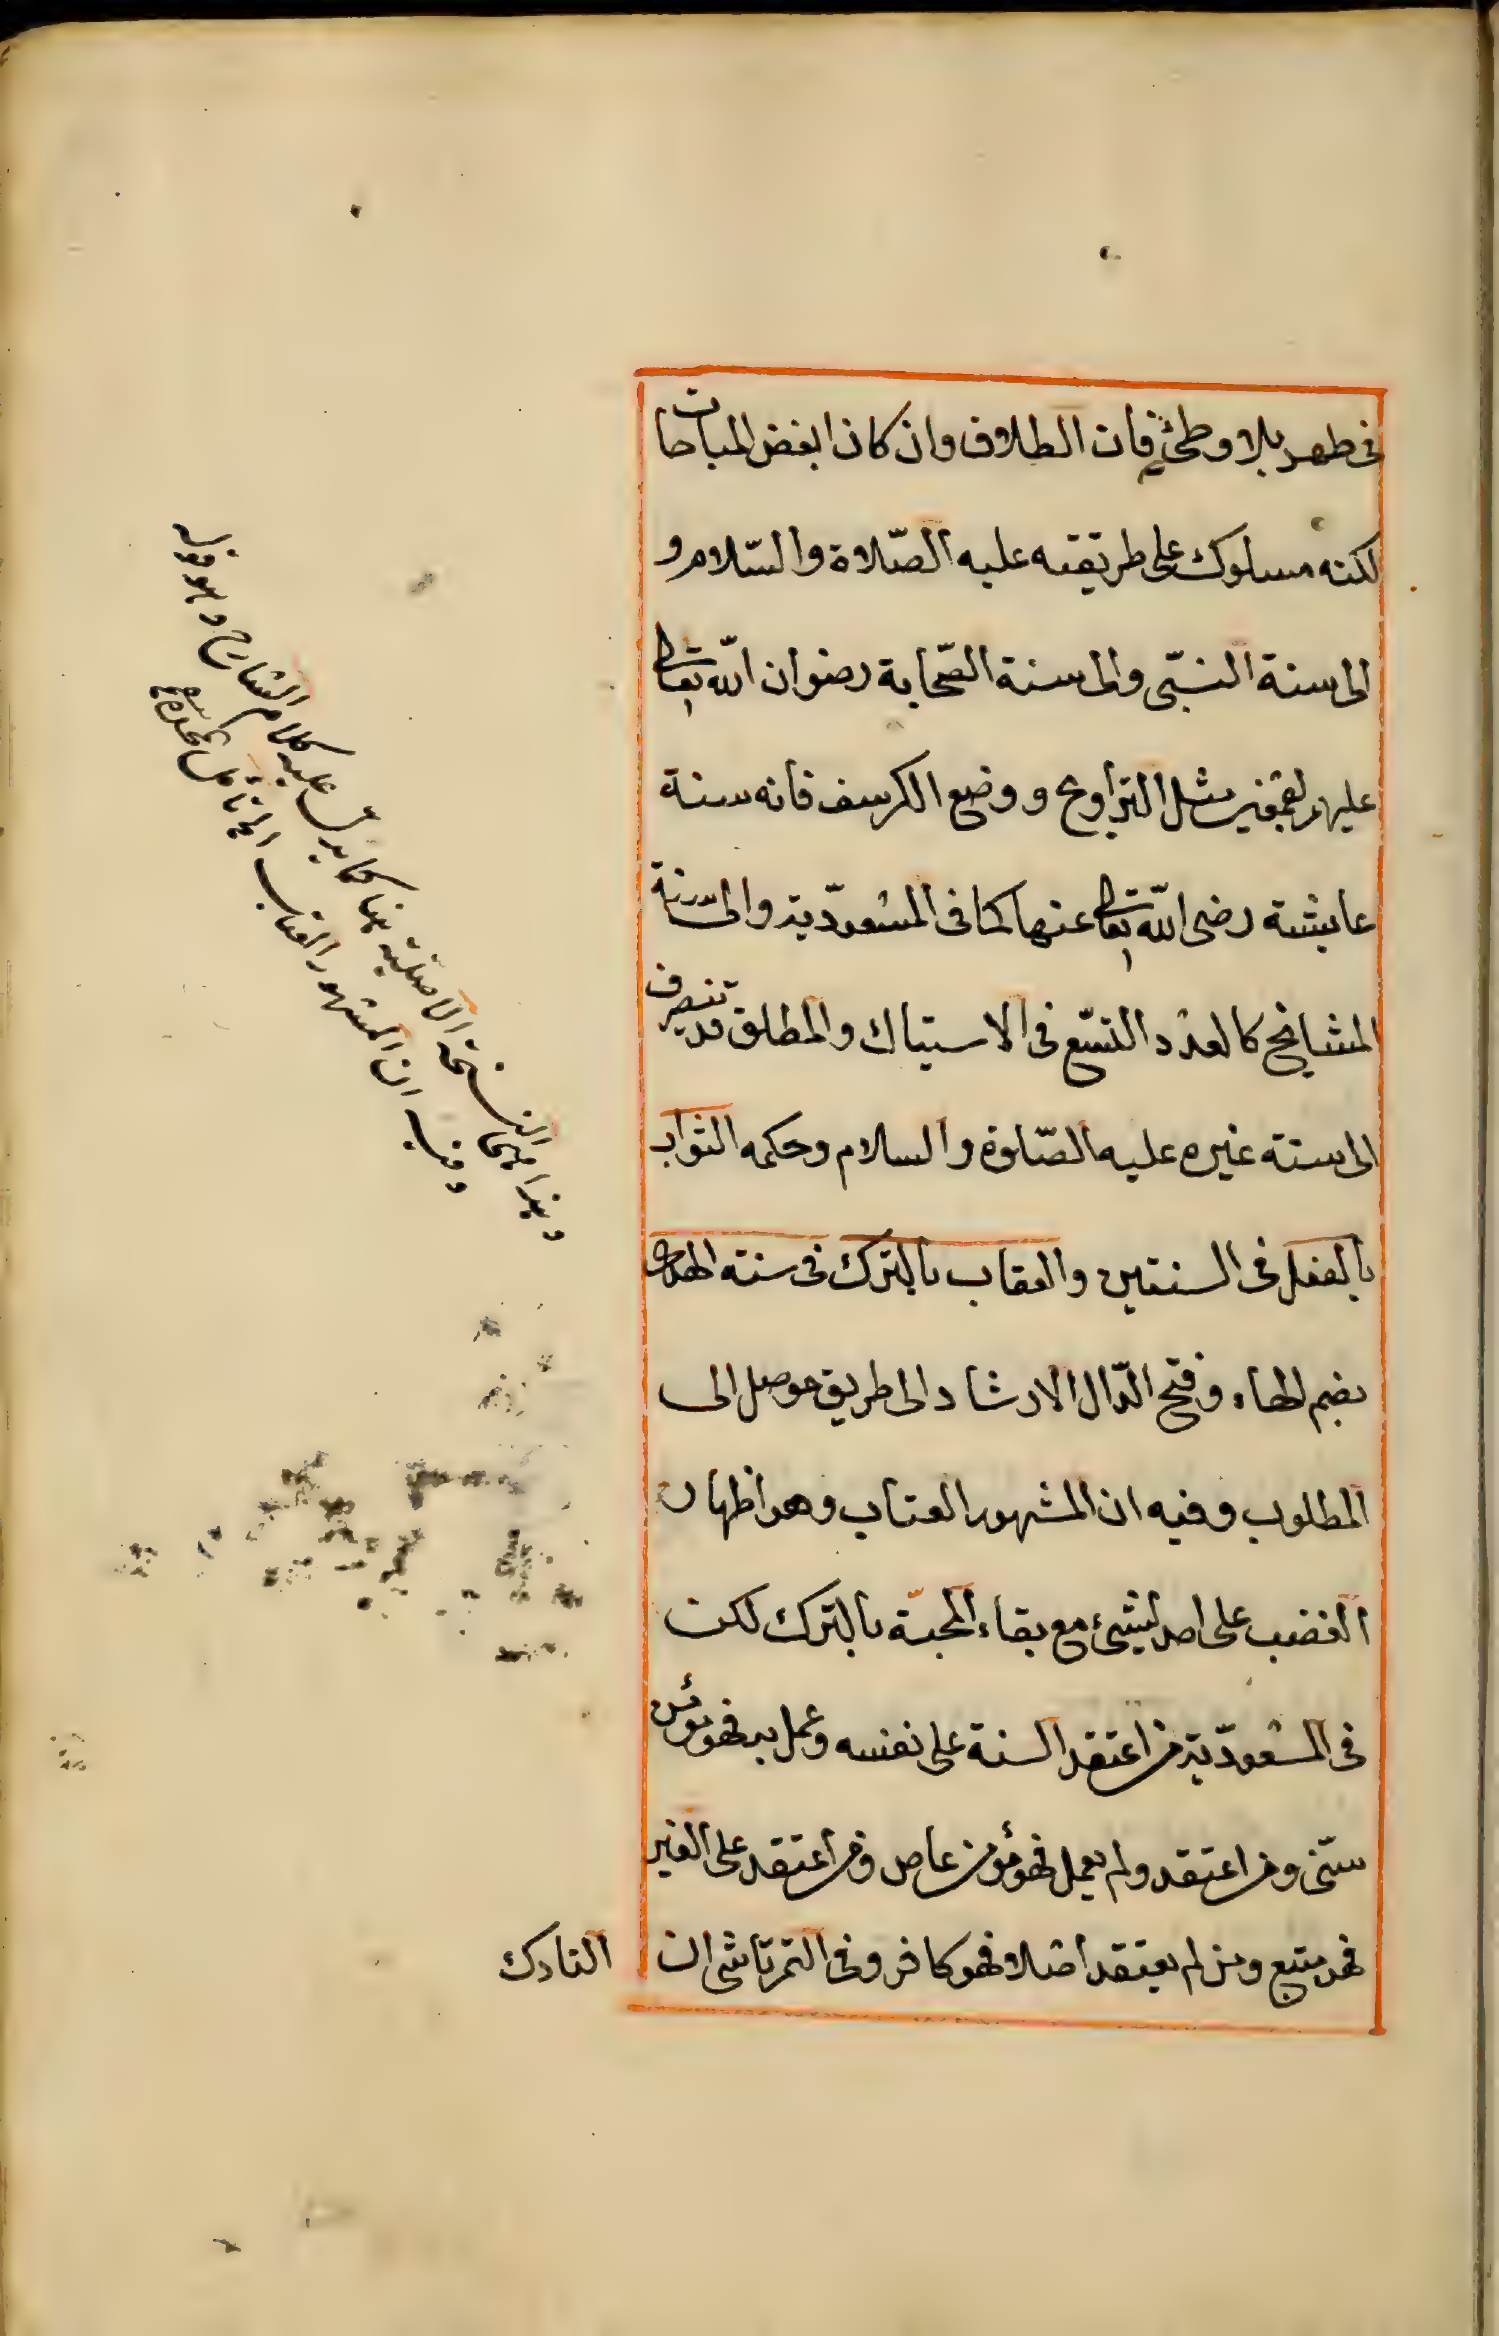 فى طهر بلا وطئ فيه فان الطلاق وان كان ابغض المباحات
لكنه مسلوك على طريقته عليه الصّلاة والسّلام و
الى سنة النبّى والى سنة الصّحابة رضوان اللّه تعالى
عليهم اجمعين مثل التراويح و وضع الكرسف فانه سنة
عايشة رضى اللّه تعالى عنها كما فى المسعوديّة والى سنة
المشايخ كالعدد التسّع فى الاستياك والمطلق قد ينصرف
الى سنته غيره عليه الصّلوة والسلام وحكمه الثواب
بالفعل فى السنتين والعقاب بالترك فى سنته الهدى
بضم الهاء وفتح الدّال الارشاد الى طريق موصل الى
المطلوب وفيه ان المشهور العتاب وهو اظهار
الغضب على امر لشئ مع بقاء المحبّة بالترك لكن
فى المسعوديّة من اعتقد السنة على نفسه وعمل به فهو مؤمن
سنّى ومن اعتقد ولم يعمل فهو مؤمن عاص ومن اعتقد على الغير
فهو متبع ومن لم يعتقد اصلا فهو كافر وفى التمرتاشى ان
التارك
النسخة الاصلية كما يدل عليه كلام الشارح وهو قوله
وفيه ان المشهور العتاب الخ تأمل